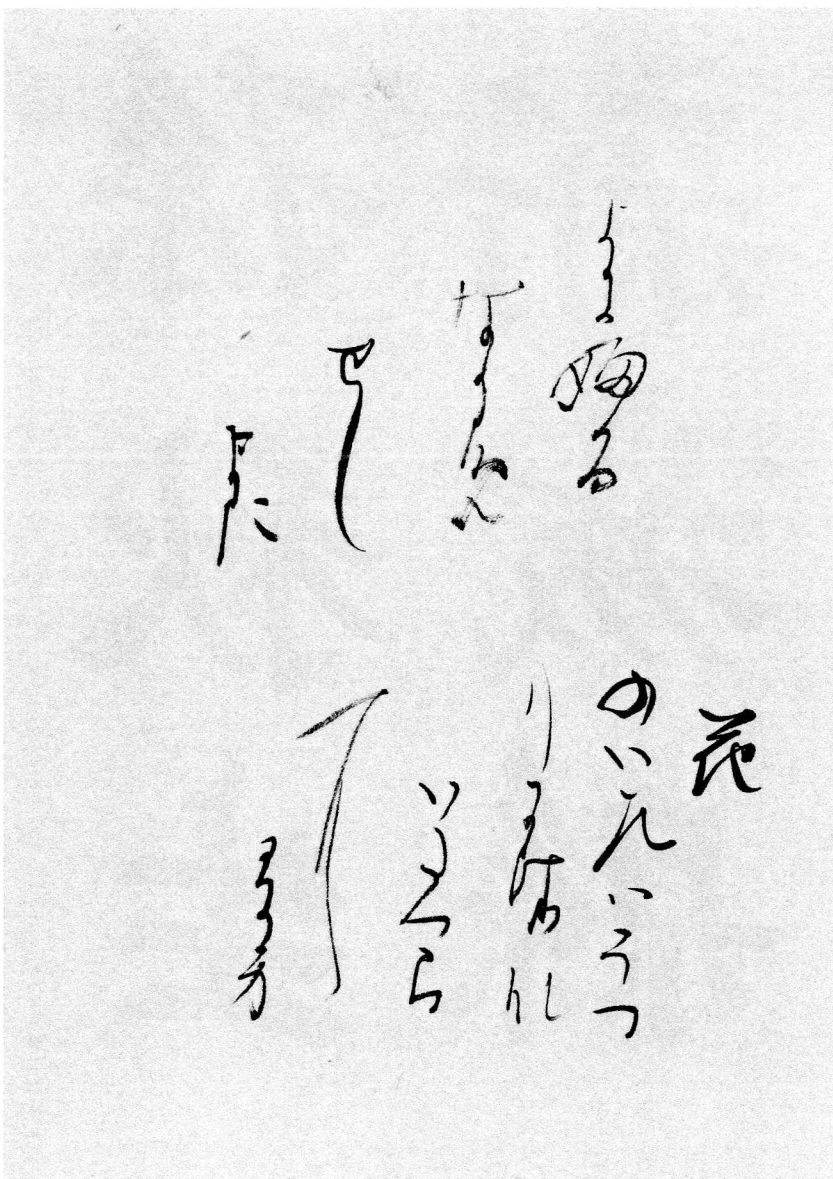 花
のいろはうつ
りにけりな
いたつら
に
わか身
よにふる
なかめ
せし
まに